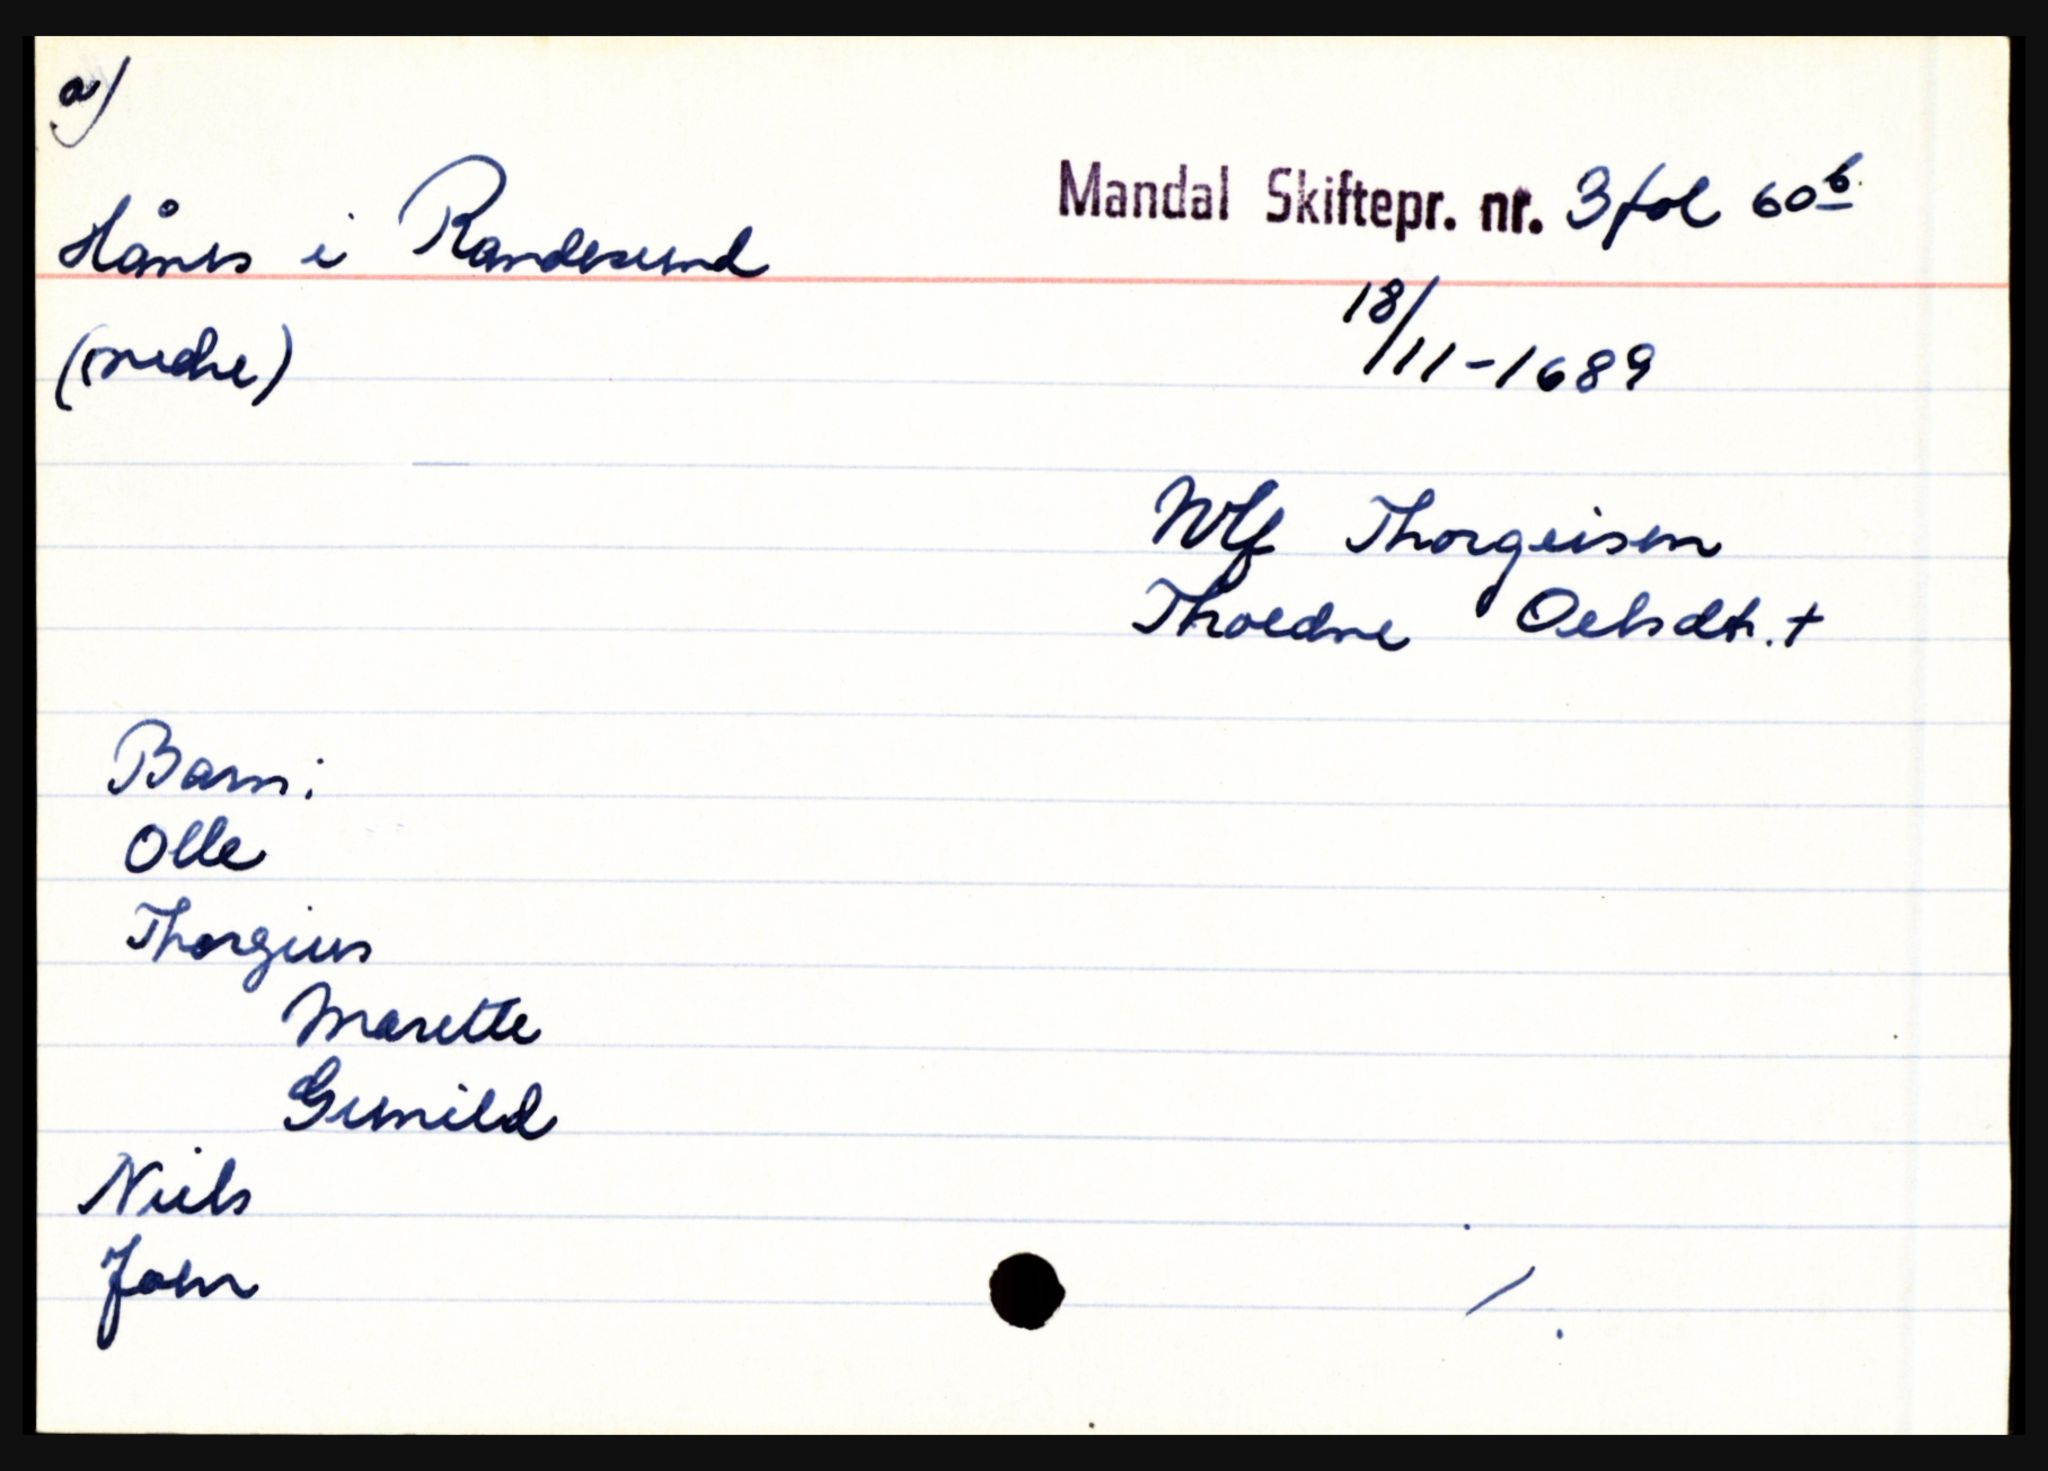 a)
Hånes i Randesund
Mandal Skiftepr. nr. 3 fol 60 b
(nedre)
18/11-1689
Wlf Thorgeisen
Thoedne Oelsdtr. +
Barn:
Olle
Thorgius
Marette
Gunild
Niels
John